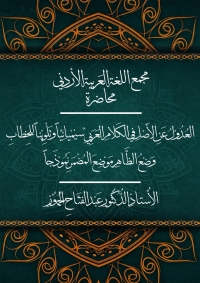 مجمع اللغة العربية الأردني
محاضرة
العدول عن الأصل في الكلام العربي سيميائياً وتلويناً للخطاب
وضع الظاهر موضع المضمر نموذجاً
الأستاذ الدكتور عبد الفتاح الحموز